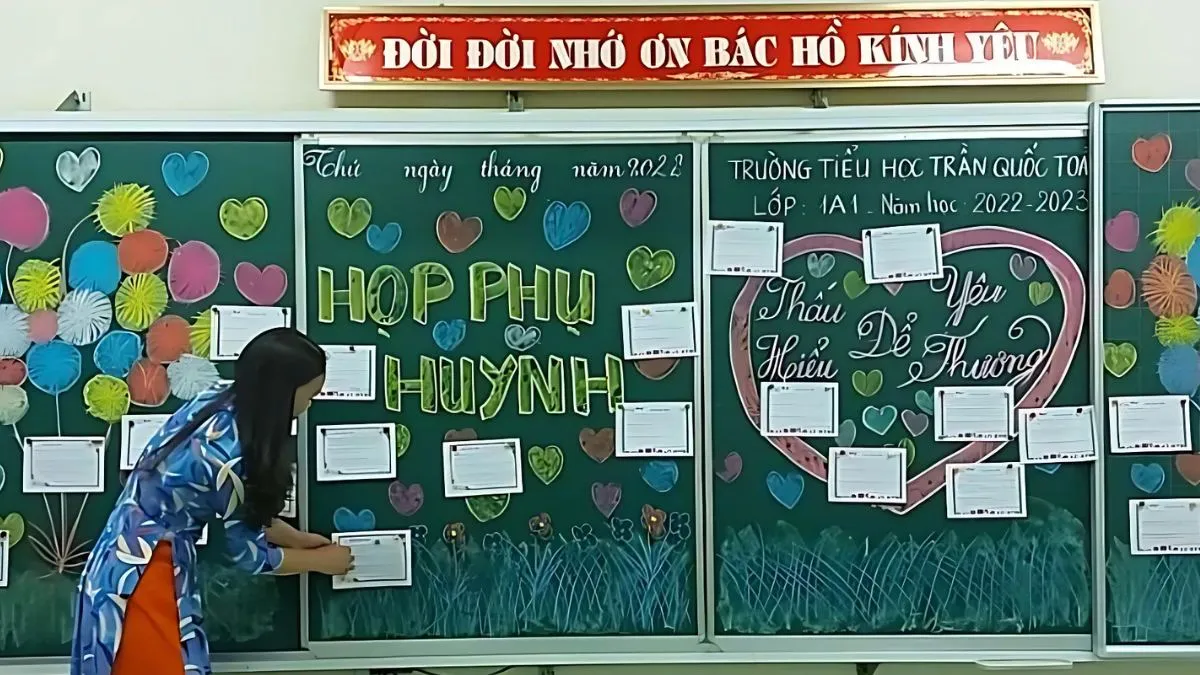 ĐỜI ĐỜI NHỚ ƠN BÁC HỒ KÍNH YÊU
Thứ ngày tháng năm 2022
HỌP PHỤ
HUYNH
TRƯỜNG TIỂU HỌC TRẦN QUỐC TOẢ
LỚP: 1A1 - Năm học 2022-2023
Thấu
Hiểu
Để
Yêu
Thương